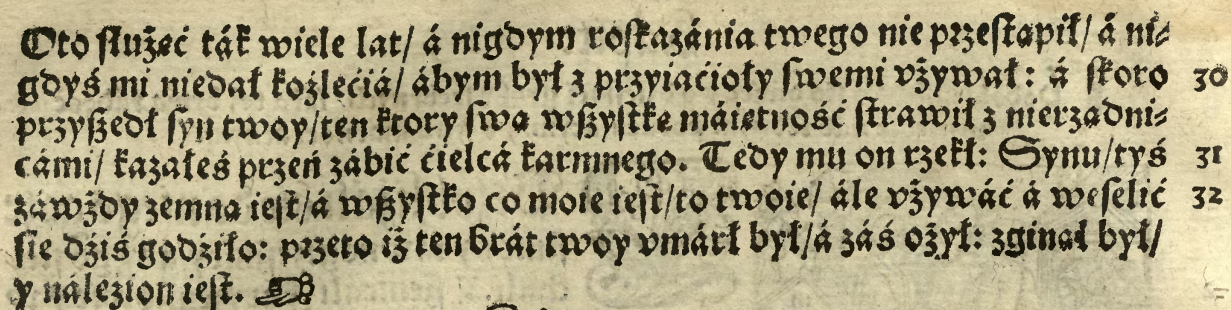 Oto ſłużęć ták wiele lat/ á nigdym roſkazánia twego nie przeſtąpił/ á ni⸗
gdyś mi niedał koźlęćiá/ ábym był z przyiaćioły ſwemi vżywał: á ſkoro 30
przyſzedł ſyn twoy/ten ktory ſwą wſzyſtkę máiętność ſtrawił z nierządni⸗
cámi/ kazałeś przeń zábić ćielcá karmnego. Tedy mu on rzekł: Synu/tyś 31
záwżdy zemną ieſt/á wſzyſtko co moie ieſt/to twoie/ ále vżywáć á weſelić 32
ſię dźiś godźiło: przeto iż ten brát twoy vmárł był/á záś ożył: zginął był/
y nálezion ieſt.